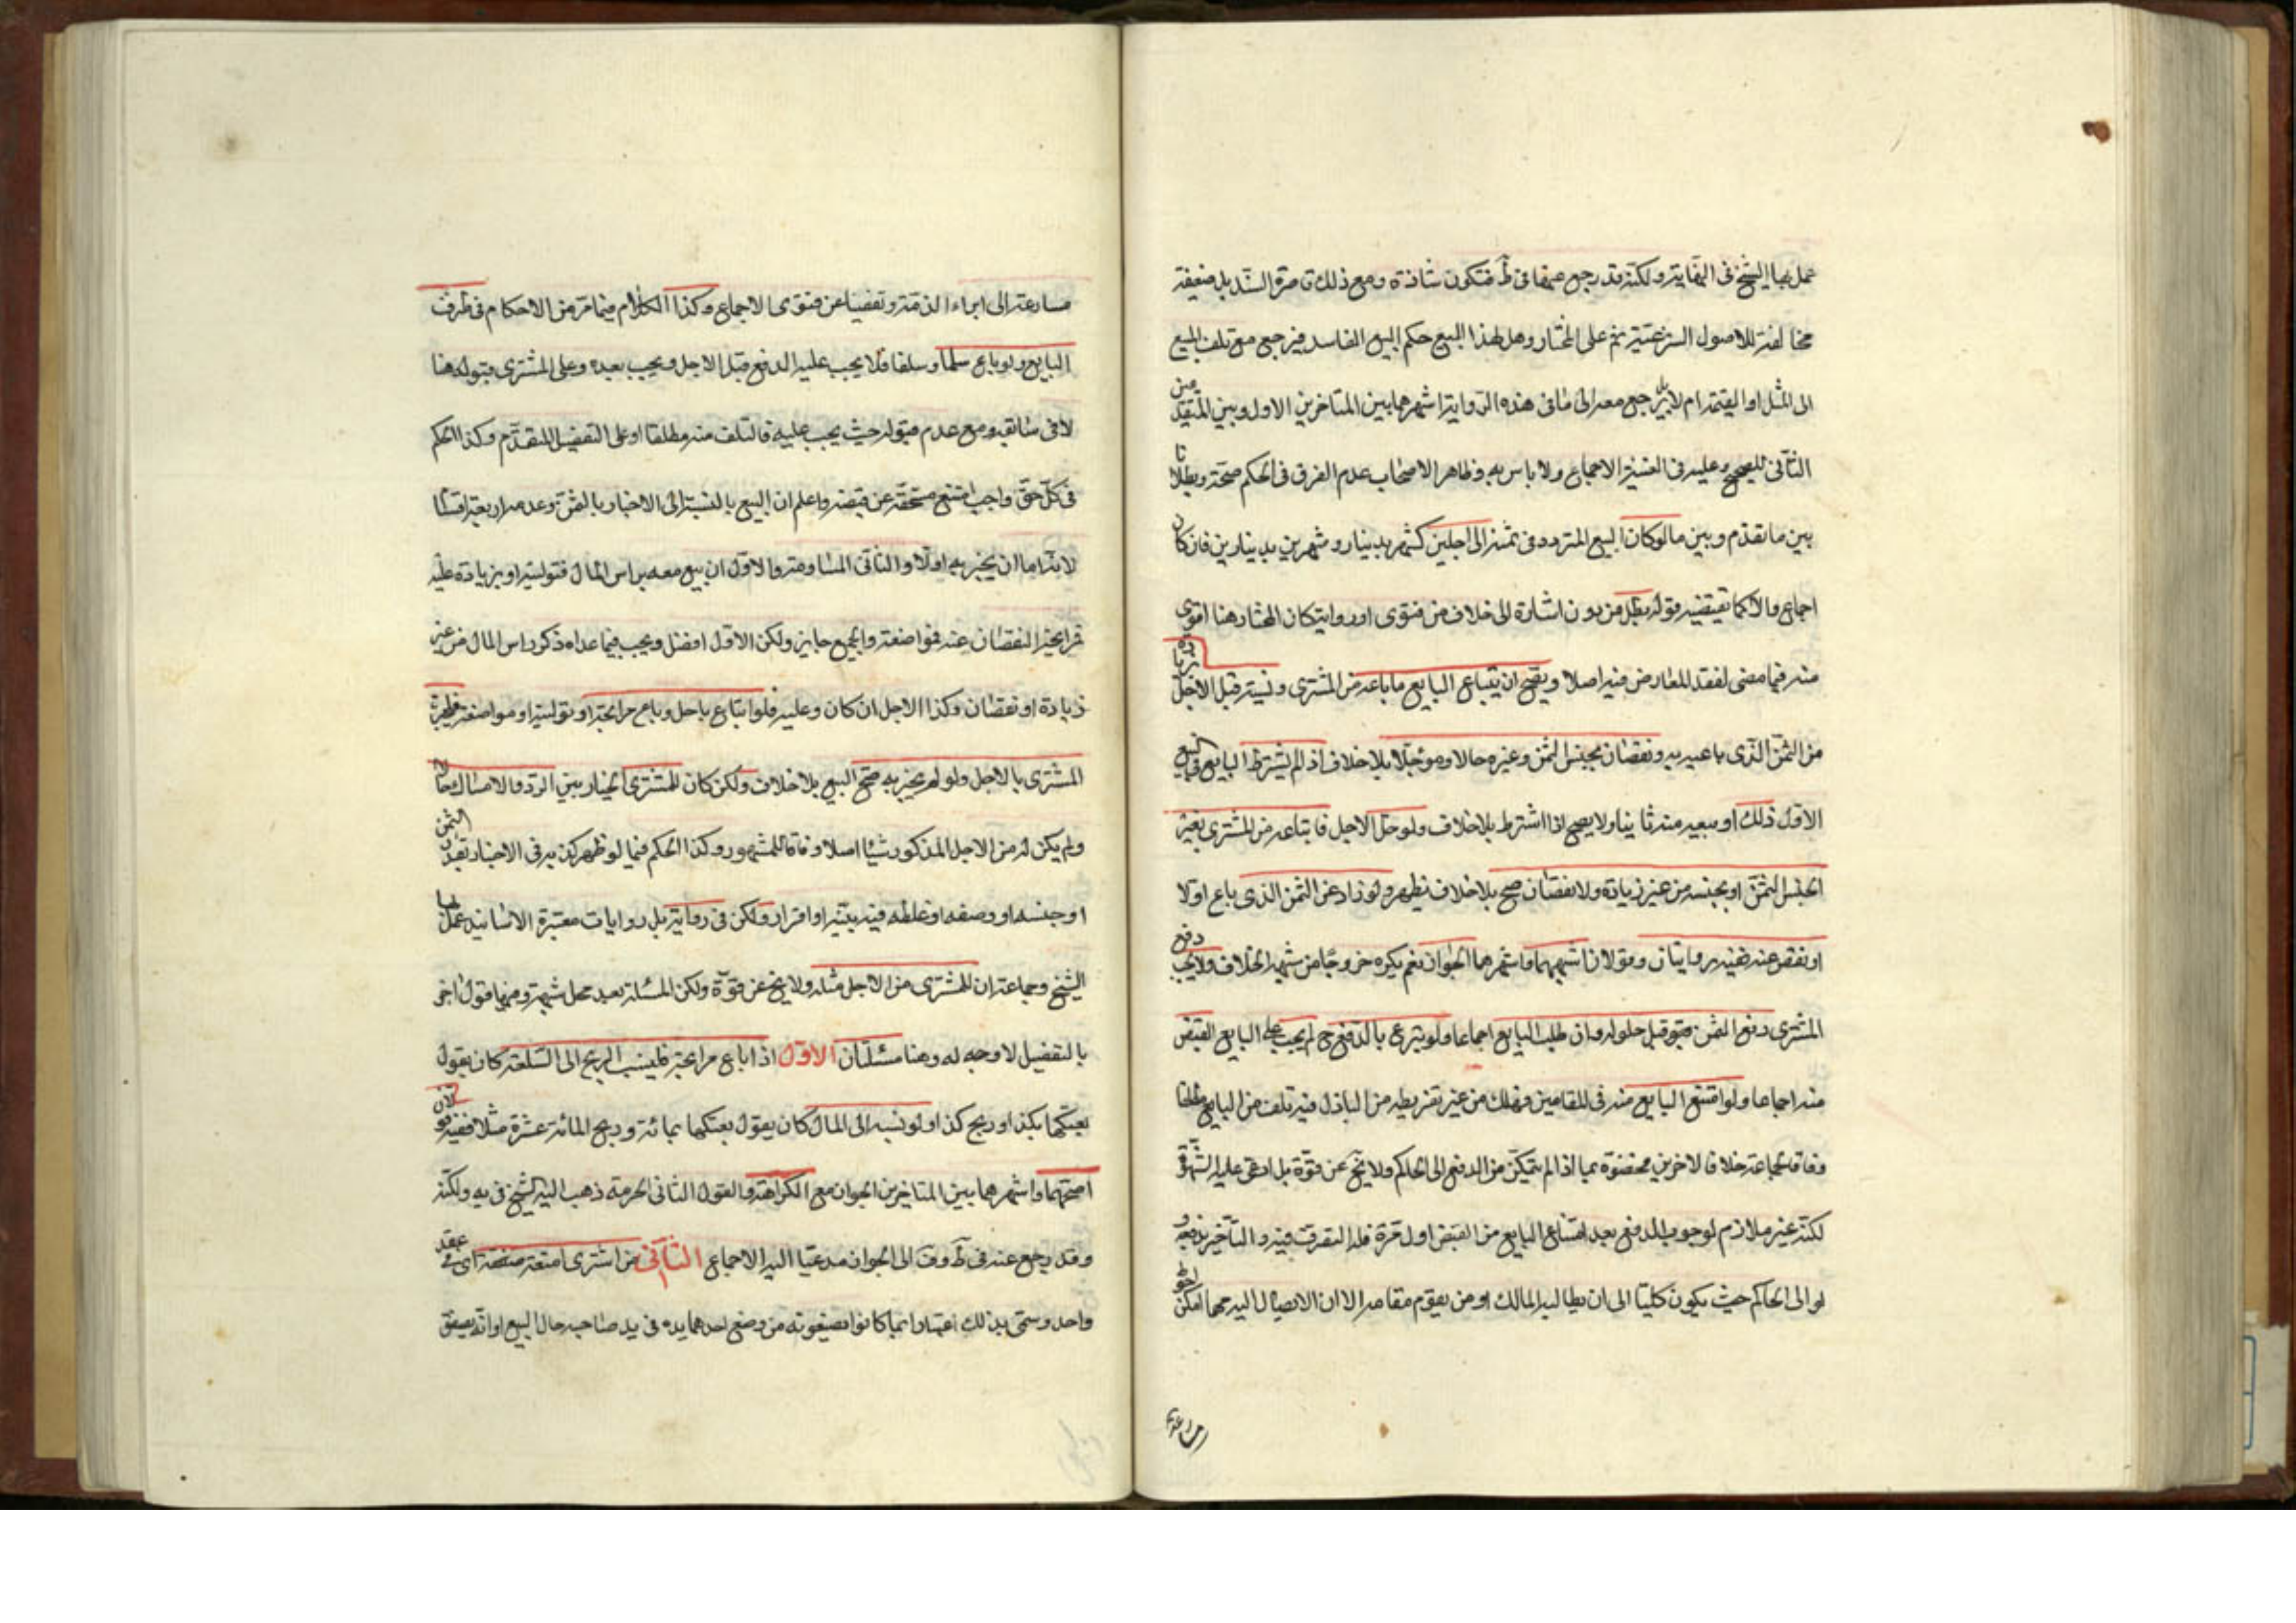 عمل بها الشيخ فى النهاية ولكنه قد رجع عنها فى ط فتكون شاذة ومع ذلك قاصرة السند بل ضعيفة
مخالفة للاصول الشرعية ثم على المختار وهل لهذا البيع حكم البيع الفاسد فيرجع مع تلف المبيع
الى المثل او القيمة ام لا بل يرجع معه الى ما فى هذه الرواية اشهرهما بين المتاخرين الاول وبين المتقدمين
الثانى للصحيح وعليه فى الغنية الاجماع ولا باس به وظاهر الاصحاب عدم الفرق فى الحكم صحة وبطلانا
بين ما تقدم وبين ما لو كان البيع المتردد فى ثمنه الى اجلين كشهر بدينار وشهرين بدينارين فان كان
اجماع والا كما تقيضيه قوله بطل من دون اشارة الى خلاف من فتوى او رواية كان المختار هنا اقوى
منه فيما مضى لفقد المعارض فيه اصلا ويصح ان يبتاع البايع ما باعه من المشترى ونسيته قبل الاجل بزيادة
من الثمن الذى باعه به ونقصان بجنس الثمن وغيره حالا ومؤجلا بلا خلاف اذ لم يشترط البايع فى البيع
الاول ذلك او يبيعه منه ثانيا ولا يصح اذا اشترط بلا خلاف ولو حل الاجل فابتاعه من المشترى بغير
الجنس الثمن او بجنسه من غير زيادة ولا نقصان صح بلا خلاف يظهر ولو زاد عن الثمن الذى باع اولا
او نقص عنه ففيه روايتان وقولان اشبههما واشهرهما الجواز نعم يكره خروجا من شبهة الخلاف ولا يجب دفع
المشترى دفع الثمن قبل حلوله وان طلب البايع اجماعا ولو تبرع بالدفع ح لم يجب على البايع القبض
منه اجماعا ولو امتنع البايع منه فى المقامين وهلك من غير تفريطه من الباذل فيه تلف من البايع مطلقا
وفاقا لجماعة خلافا لاخرين فخصوه بما اذا لم يتمكن من الدفع الى الحاكم ولا يخ عن قوة بل ادعى عليه الشهرة
لكنه غير ملازم لوجوب الدفع بعد امتناع البايع من القبض اول مرة فله التصرف فيه والتاخير بدفعه
له والى الحاكم حيث يكون كليا الى ان يطالبه المالك او من يقوم مقامه الا ان الايصال اليه مهما امكن احوط
مسارعة
مسارعة الى ابراء الذمة وتفصيا عن فتوى الاجماع وكذا الكلام فيما مر من الاحكام فى طرف
البايع ولو باع سلما وسلفا فلا يجب عليه الدفع قبل الاجل ويجب بعده وعلى المشترى قبوله هنا
لا فى سابقه ومع عدم قبوله حيث يجب عليه فالتلف منه مطلقا او على التفصيل المتقدم وكذا الحكم
فى كل حق واجب امتنع مستحقه عن قبضه واعلم ان البيع بالنسبة الى الاخبار بالثمن وعدمه اربعة اقسام
لانه اما ان يخبر به اولا والثانى المساومة والاول ان بيع معه براس المال فتولية او بزيادة عليه
فمرابحة او نقصان عنه فمواضعة والجميع جايز ولكن الاول افضل ويجب فيما عداه ذكر راس المال من غير
زيادة او نقصان وكذا الاجل ان كان وعليه فلو ابتاع باجل وباع مرابحة او تولية او مواضعة فليخبر
المشترى بالاجل ولو لم يخبر به صح البيع بلا خلاف ولكن كان للمشترى الخيار بين الرد والامساك حالا
ولم يكن له من الاجل المذكور شيئا اصلا وفاقا للمشهور وكذا الحكم فيما لو ظهر كذبه فى الاخبار بقدر الثمن
او جنسه او وصفه او غلطه فيه ببينة او اقرار ولكن فى رواية بل روايات معتبرة الاسانيد عمل بها
الشيخ وجماعة ان للمشترى من الاجل مثله ولا يخ عن قوة ولكن المسئلة بعد محل شبهة ومنها قول اخر
بالتفصيل لا وجه له وهنا مسئلتان الاول اذا باع مرابحة فلينسب الربح الى السلعة كان يقول
بعتكها بكذا وربح كذا ولو نسبه الى المال كان يقول بعتكها بمائة وربح المائة عشرة مثلا ففيه قولان
اصحهما واشهرهما بين المتاخرين الجواز مع الكراهة والقول الثانى الحرمة ذهب اليه الشيخ فى يه ولكنه
وقد رجع عنه فى ط وف الى الجواز مدعيا اليه الاجماع الثانى من اشترى امتعة صفقة اى فى عقد
واحد وسمى بذلك اعتبارا بما كانوا يصنعونه من وضع احدهما يده فى يد صاحبه حال البيع او انه يصفق